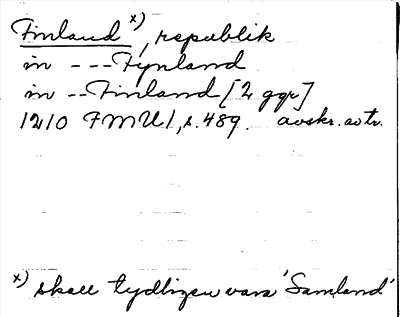 Finland x), republik
in --- Fynland
in -- Finland [2 ggr]
1210 FMU 1, s. 489. avskr. av tr.
x) skall tydligen vara 'Samland'